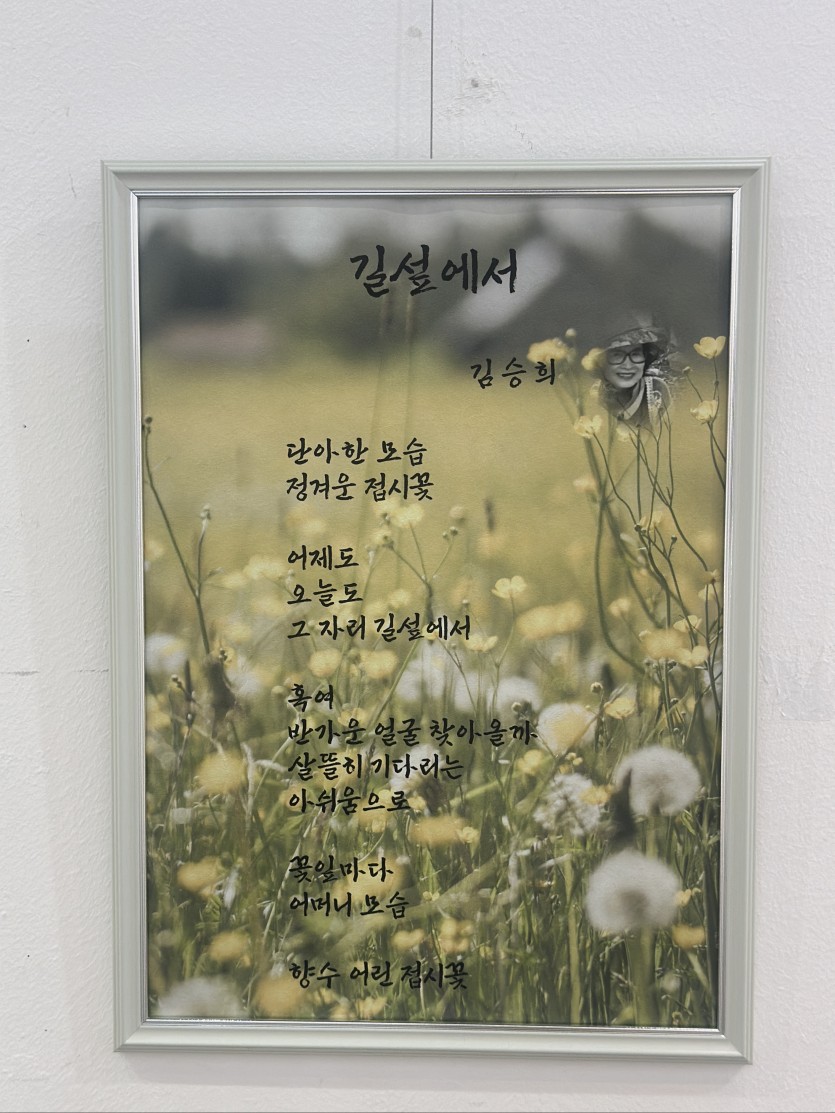 길섶에서
김승희
단아한 모습
정겨운 접시꽃
어제도
오늘도
그 자리 길섶에서
혹여
반가운 얼굴 찾아올까
살뜰히 기다리는
아쉬움으로
꽃잎마다
어머니 모습
향수 어린 접시꽃